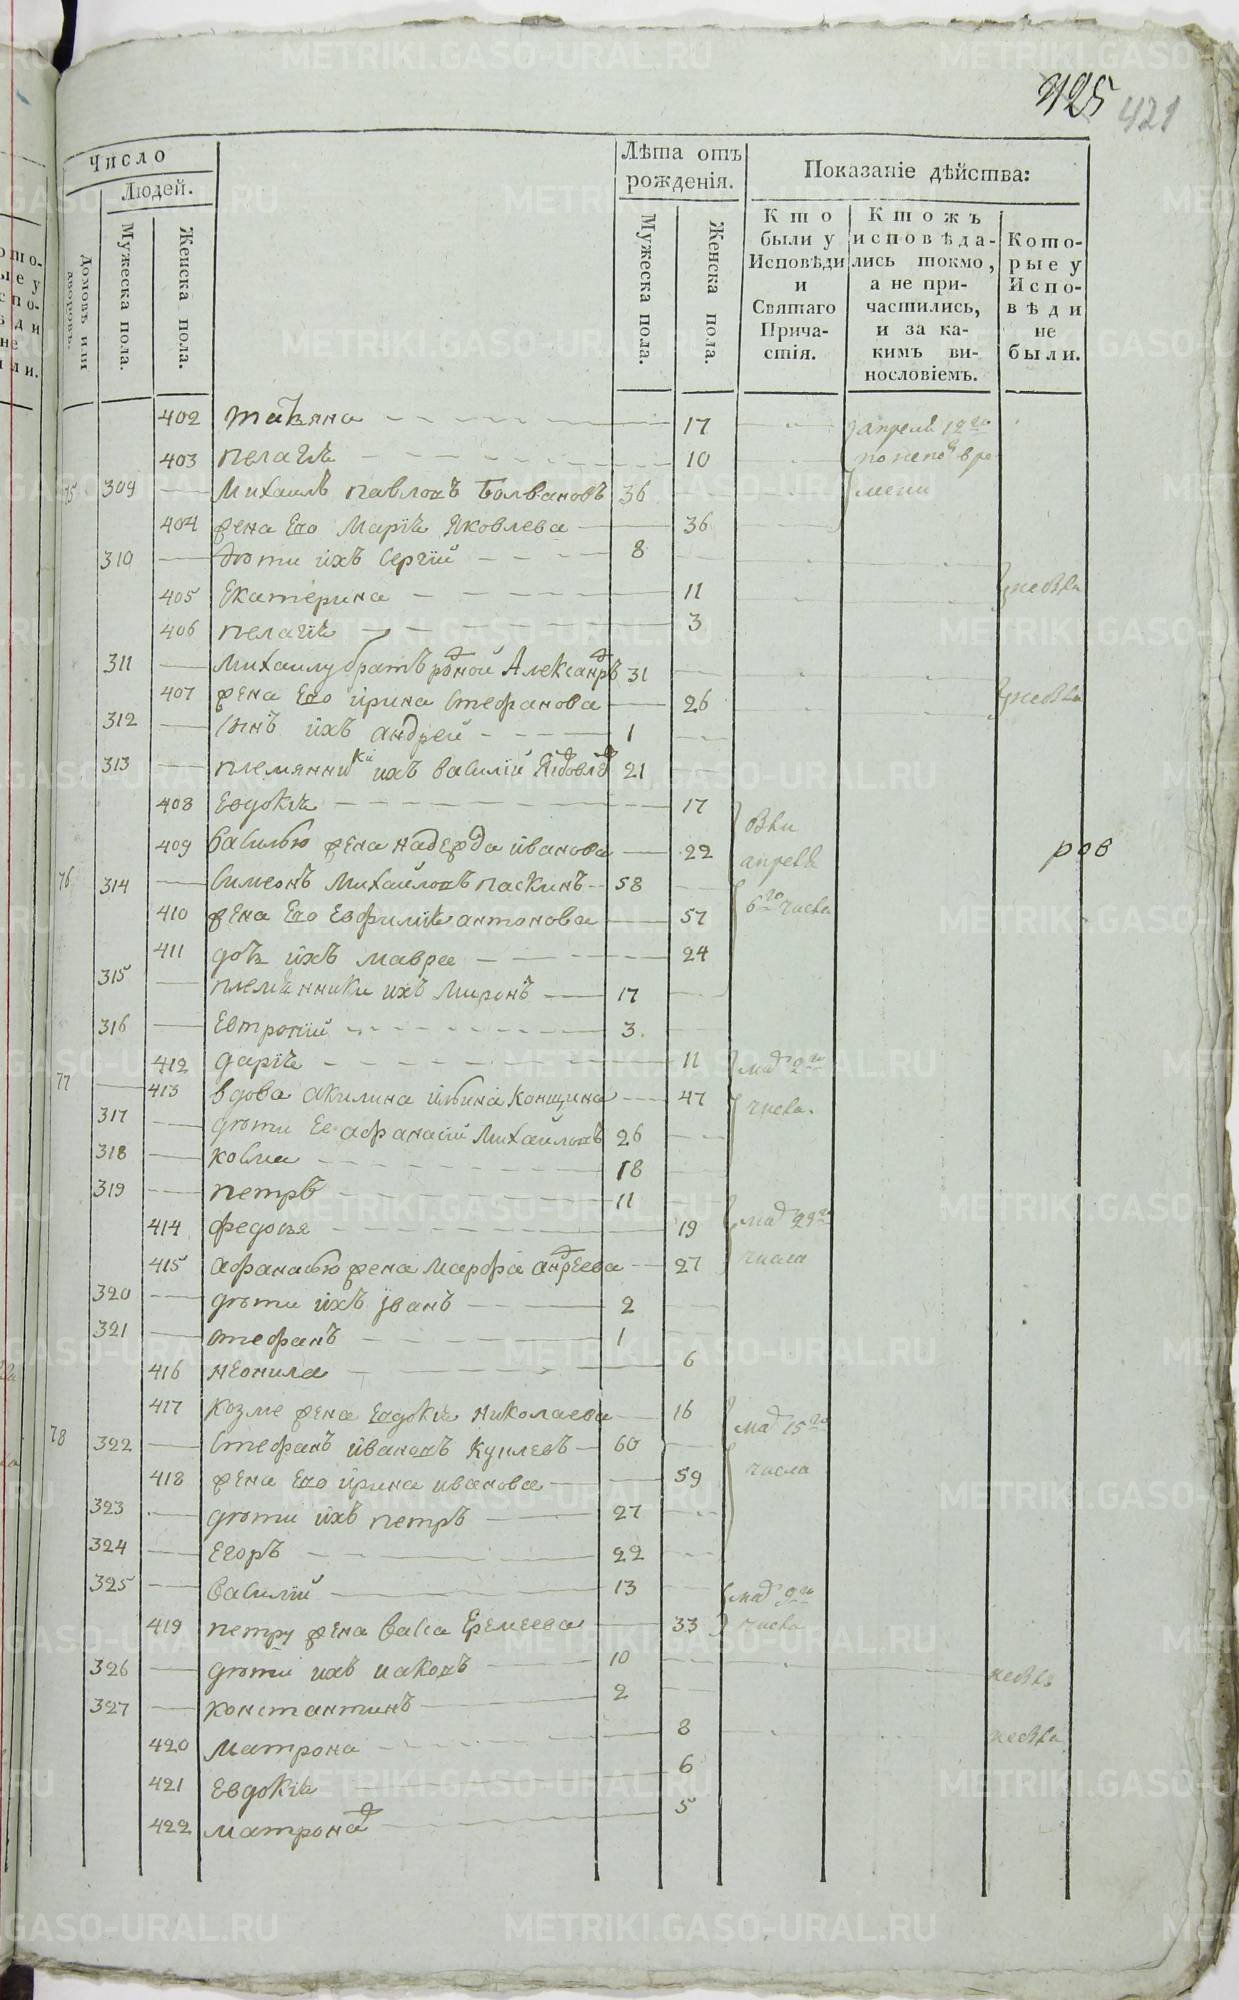 425 421
Число
Людей.
Домовъ или дворовъ.
Мужеска пола.
Женска пола.
Лѣта отъ рожденія.
Мужеска пола.
Женска пола.
Показаніе дѣйства:
Кто были у Исповѣди и Святаго Причастія.
Ктожъ исповѣдались токмо, а не причастились, и за какимъ винословіемъ.
Которые у Исповѣди не были.
402 татьяна 17 апреля 12го
403 пелагіѣ 10
75 309 Михаилъ павловъ Болвановъ 36 мени
404 жена Его Маріѣ Яковлева 36
310 дѣти ихъ Сергій 8
405 Екатерина 11
406 пелагіѣ 3
311 Михаилу братъ родной Александръ 31
407 жена Его ирина Стефанова 26
312 Сынъ ихъ андрей 1
313 племянники ихъ Василій 21
408 Евдокіѣ 17
409 Василью жена надежда иванова 22 апреля
76 314 Симеонъ Михайловъ паскинъ 58
410 жена Его Евфиміѣ антонова 57 6го числа
411 дочь ихъ мавра 24
315 племѣнники ихъ Миронъ 17
316 Евтропій 3
412 даріѣ 11 маѣ 2го
77 413 вдова акилина ильина Конщина 47 числа.
317 дѣти Ее афанасій Михайловъ 26
318 козма 18
319 петръ 11
414 федосья 19 маѣ 29го
415 афанасью жена марфа андреева 27 числа
320 дѣти ихъ иванъ 2
321 стефанъ 1
416 неонила 6
417 козме жена Евдокіѣ Николаева 16 маѣ 15го
78 322 Стефанъ ивановъ Куклевъ 60
418 жена Его ирина иванова 59 числа
323 дѣти ихъ петръ 27
324 Егоръ 22
325 Василій 13 маѣ 9го
419 петру жена Васса Еремеева 33 числа
326 дѣти ихъ иаковъ 10
327 константинъ 2
420 матрона 8
421 Евдокіѣ 6
422 матрона 5
ров
METRIKI.GASO-URAL.RU